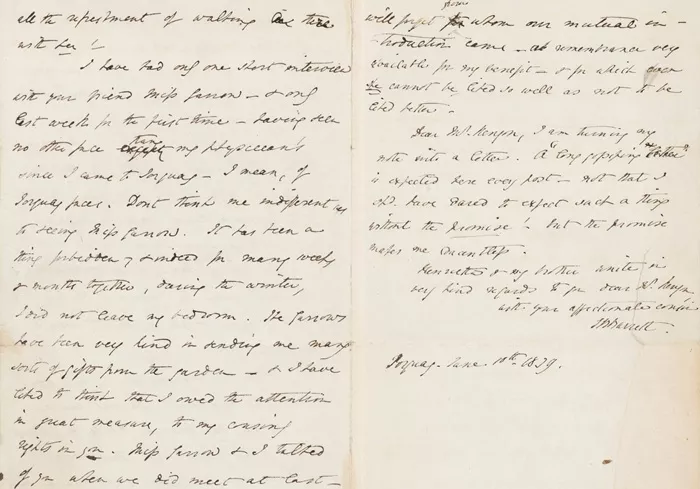 all the refreshment of walking there
with her!
I have had only one short interview
with your friend Miss Garrow - & only
last week for the first time - having seen
no other face than my physician's
since I came to Torquay - I mean, of
Torquay faces. Dont think me indifferent as
to seeing Miss Garrow. It has been a
thing forbidden, & indeed for many weeks
& months together, during the winter,
I did not leave my bedroom. The Garrows
have been very kind in sending me many
sorts of gifts from the garden - & I have
liked to think that I owed the attention
in great measure, to my cousinly
rights in you. Miss Garrow & I talked
of you when we did meet at last -
will forget from whom our mutual in-
troduction came - a remembrance very
available for my benefit - & for which even
she cannot be liked so well as not to be
liked better.
Dear Mr. Kenyon, I am turning my
note into a letter. A "long gossiping letter"
is expected here every post - not that I
shd. have dared to expect such a thing
without the promise! - but the promise
makes me dauntless.
Henrietta & my brother unite in
very kind regards to you dear Mr. Kenyon
with your affectionate cousin
EBBarrett.
Torquay. June 10th. 1839.